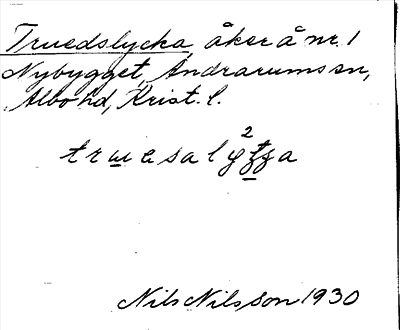 Truedslycka, åker å nr. 1
Nybygget, Andrarums sn,
Albo hd, Krist. l.
Nils Nilsson 1930